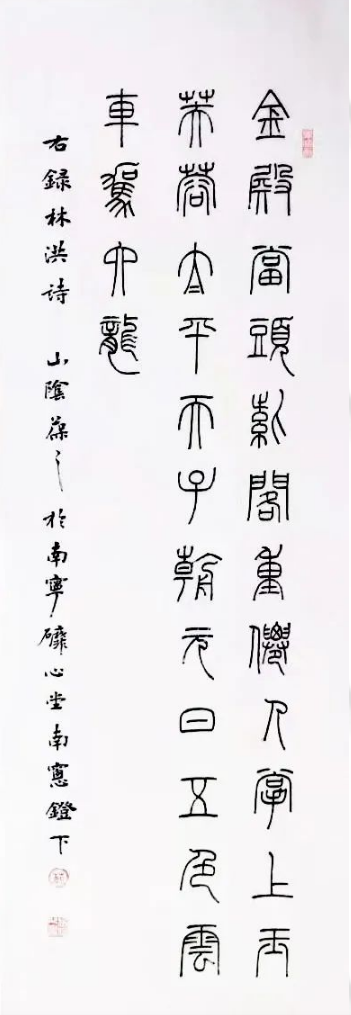 金殿當頭紫閣重僊人掌上玉
芙蓉太平天子朝元日五色雲
車駕六龍
右録林洪詩 山陰葆之於南寧礦心堂南窻鐙下